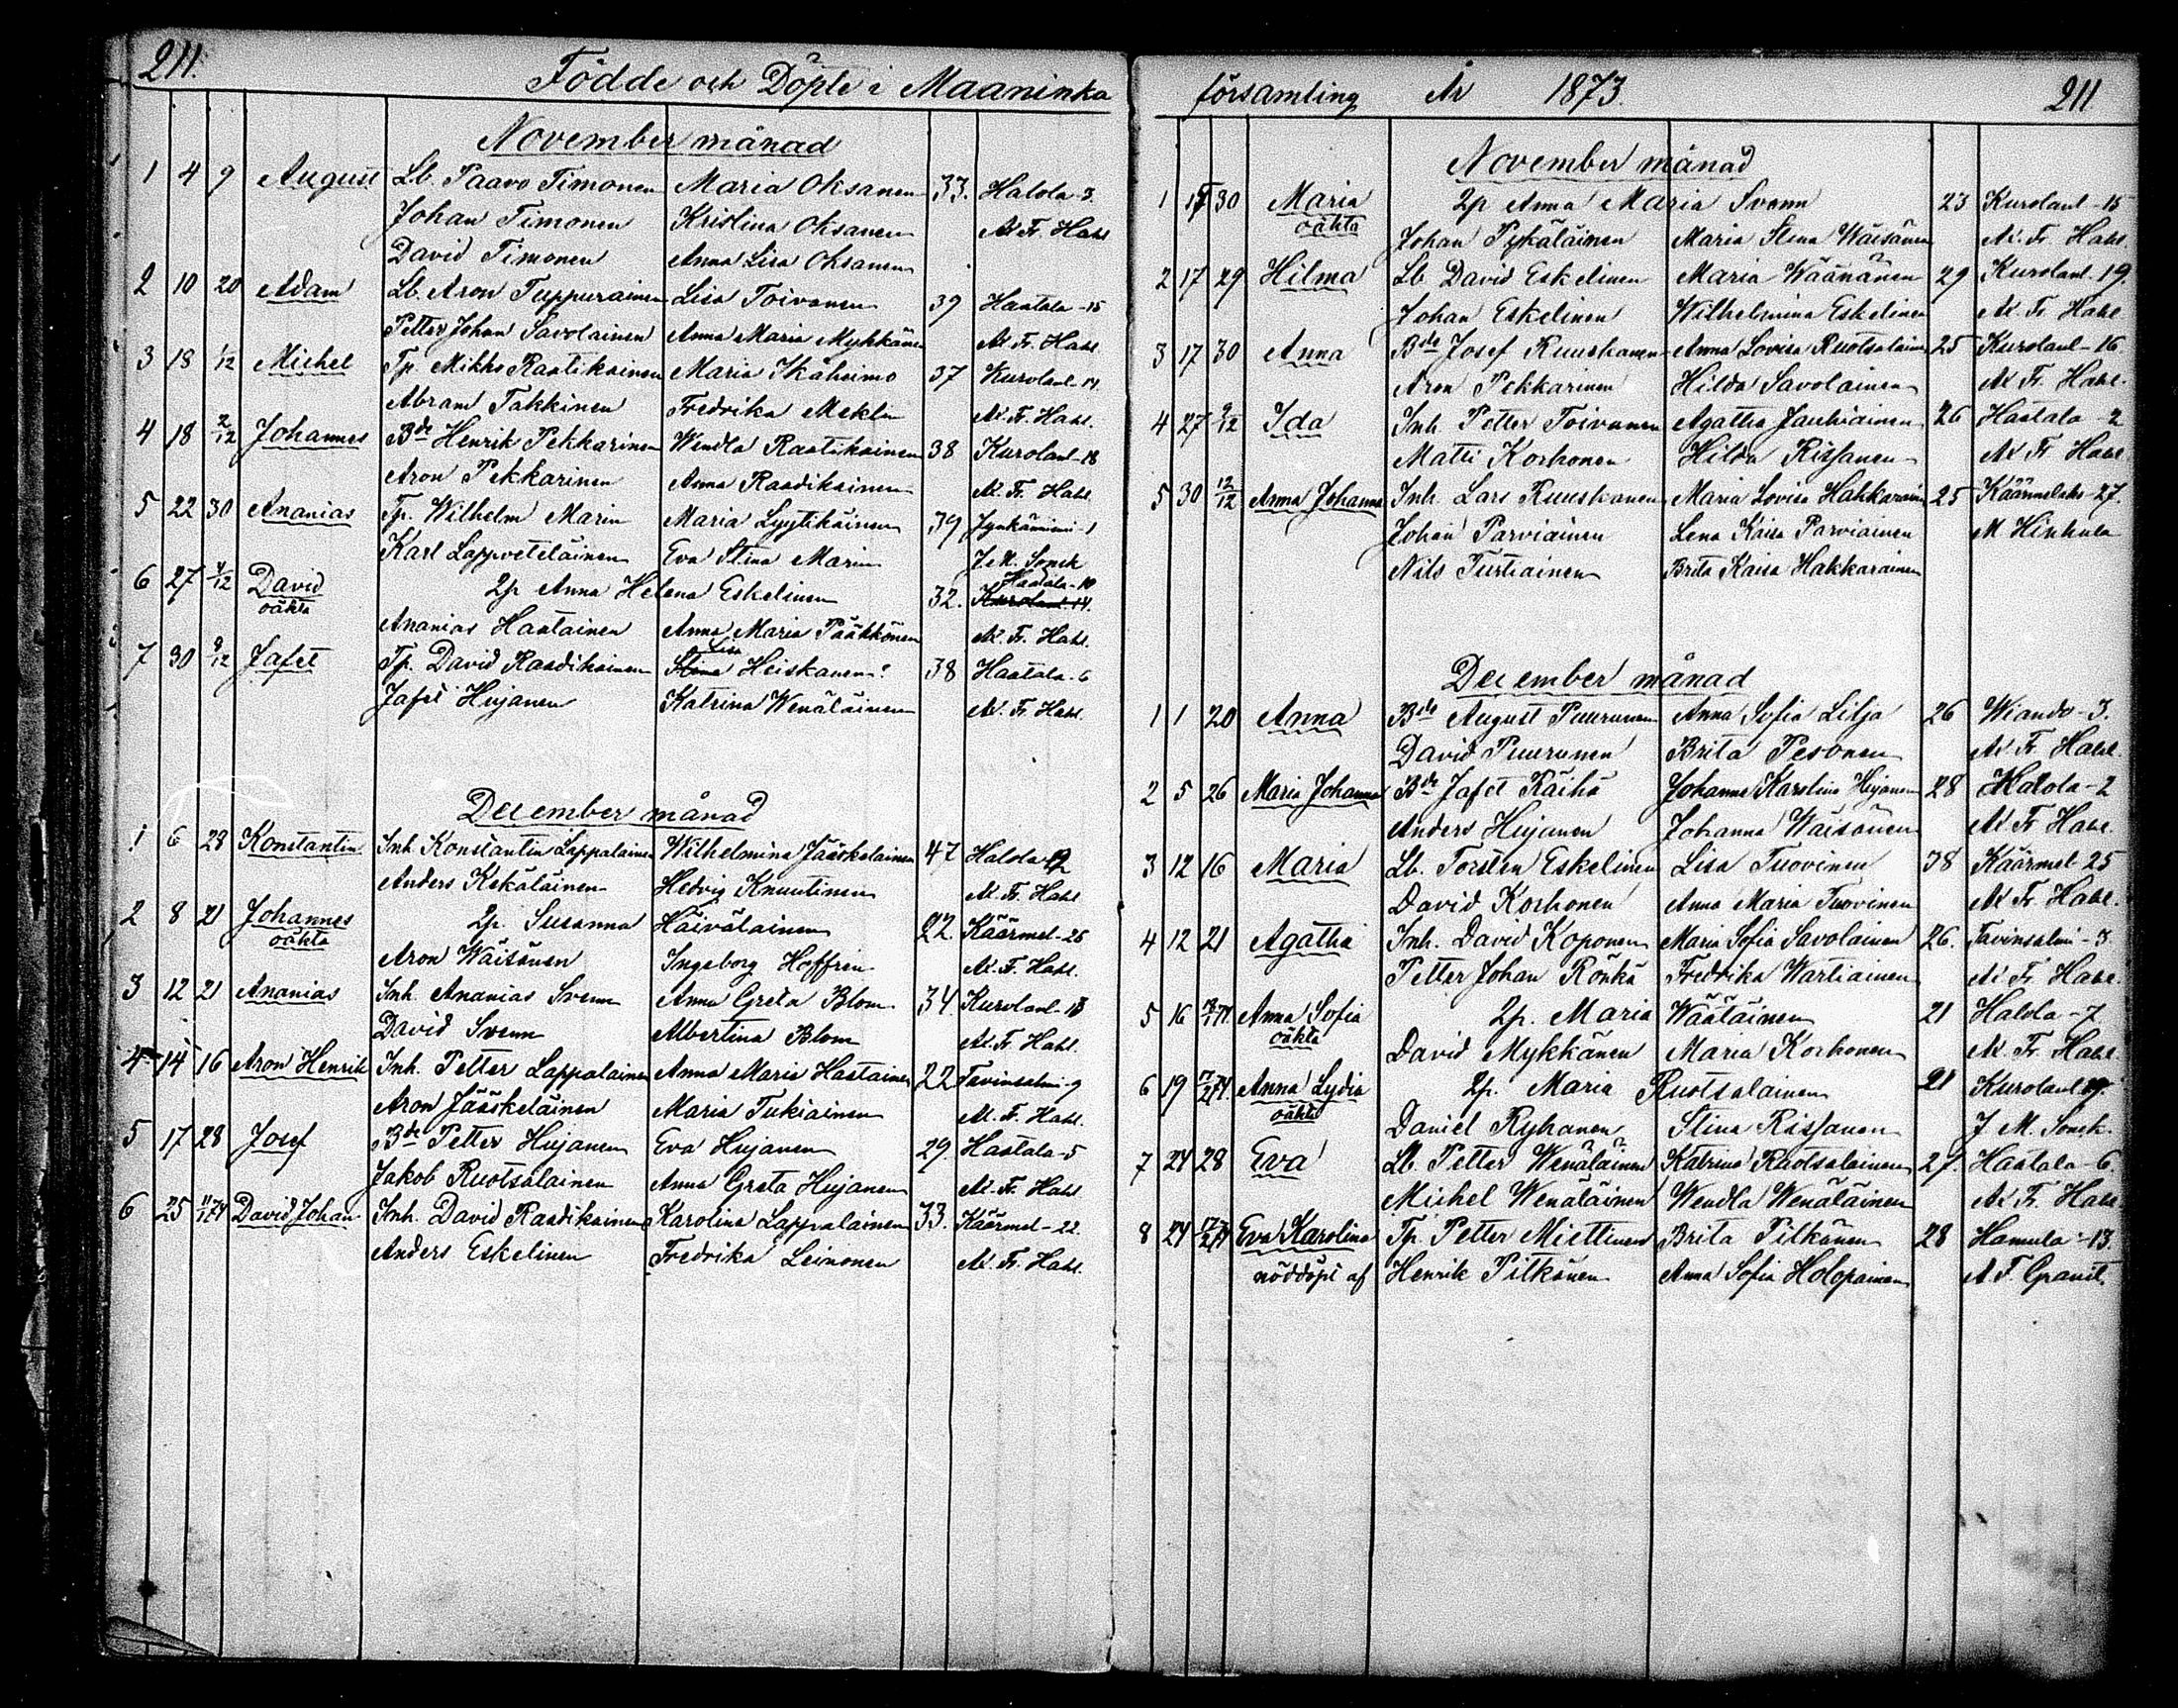 211.
Födde och Döpte i Maaninka
November månad
1 4 9 August Lb. Paavo Timonen Maria Oksanen 33. Halola-3.
Johan Timonen Kristina Oksanen Al. Fr. Hahl
David Timonen Anna Lisa Oksanen
2 10 20 Adam Lb. Aron Tuppurainen Lisa Toivonen 39 Haatala-15
Petter Johan Savolainen Anna Maria Mykkänen Al. Fr. Hahl
3 18 1/12 Michel Tp. Mikko Raatikainen Maria Ikäheimo 37 Kurolanl-14
Abram Takkinen Fredrika Meklin Al. Fr. Hahl.
4 18 2/12 Johannes Bde Henrik Pekkarinen Wendla Raatikainen 38 Kurolanl-18
Aron Pekkarinen Anna Raadikainen Al. Fr. Hahl.
5 22 30 Ananias Tp. Wilhelm Marin Maria Lyytikäinen 39 Jynkänniemi-1
Karl Lappveteläinen Eva Stina Marin J. M. Sonck
Haatala-10
6 27 4/12 David 2p Anna Helena Eskelinen 32. Kurolanl-14.
oäkta
Ananias Haatainen Anna Maria Pääkkönen Al. Fr. Hahl.
Lisa
7 30 9/12 Jafet Tp. David Raadikainen Stina Heiskanen 38 Haatala-6
Jafet Hujanen Katrina Wenäläinen Al. Fr. Hahl.
December månad
1 6 28 Konstantin Inh. Konstantin Lappalainen Wilhelmina Jääskelainen 47 Halola-
Anders Kekäläinen Hedvig Knuutinen Al. Fr. Hahl
2 8 21 Johannes 2p. Susanna Häivälainen 22. Käärmel-26
oäkta
Aron Wäisänen Ingeborg Hoffrin Al. Fr. Hahl.
3 12 21 Ananias Inh. Ananias Svenn Anna Greta Blom 34 Kurolanl-18
David Svenn Albertina Blom Al. Fr. Hahl.
4 14 16 Aron Henrik Inh. Petter Lappalainen Anna Maria Haatainen 22 Tavinsalmi-9
Aron Jääskeläinen Maria Tukiainen Al. Fr. Hahl.
5 17 28 Josef Bde Petter Hujanen Eva Hujanen 29 Haatala-5
Jakob Ruotsalainen Anna Greta Hujanen Al. Fr. Hahl
6 25 11/1 74 David Johan Inh. David Raadikainen Karolina Lappalainen 33. Käärmel-22.
Anders Eskelinen Fredrika Leinonen Al. Fr. Hahl.
församling År 1873. 211
November månad
1 17 30 Maria 2p Anna Maria Svenn 23 Kurolanl-15
oäkta
Johan Pykäläinen Maria Stina Wäisänen Al. Fr. Hahl.
2 17 29 Hilma Lb David Eskelinen Maria Väänänen 29 Kurolanl-19.
Johan Eskelinen Wilhelmina Eskelinen Al. Fr. Hahl
3 17 30 Anna Bde Josef Ruuskanen Anna Lovisa Ruotsalainen 25 Kurolanl-16
Aron Pekkarinen Hilda Savolainen Al. Fr. Hahl.
4 27 9/12 Ida Inh. Petter Toivanen Agatha Jauhiainen 26 Haatala-2
Matti Korhonen Hilda Rissanen Al. Fr. Hahl
5 30 12/12 Anna Johanna Inh. Lars Ruuskanen Maria Lovisa Hakkarainen 25 Käärmelaks-27.
Johan Parviainen Lena Kaisa Parviainen M Hinkula
Nils Turtiainen Brita Kaisa Hakkarainen
December månad
1 1 20 Anna Bde August Puurunen Anna Sofia Lilja 26 Wiando-3.
David Puurunen Brita Pesonen Al. Fr. Hahl.
2 5 26 Maria Johanna Bde Jafet Räihä Johanna Karolina Hujanen 28 Halola-2
Anders Hujanen Johanna Wäisänen Al. Fr. Hahl.
3 12 16 Maria Lb. Torsten Eskelinen Lisa Tuovinen 38 Käärmel-25
David Korhonen Anna Maria Tuovinen Al. Fr. Hahl.
4 12 21 Agatha Inh. David Koponen Maria Sofia Savolainen 26. Tavinsalmi-3
Petter Johan Rönkä Fredrika Wartiainen Al. Fr. Hahl.
5 16 Anna Sofia 2p. Maria Wäätäinen 21 Halola-7
oäkta
David Mykkänen Maria Korhonen Al. Fr. Hahl
6 19 Anna Lydia 2p. Maria Ruotsalainen 21 Kurolanl
oäkta
Daniel Ryhanen Stina Rissanen J. M. Sonck.
7 24 28 Eva Lb. Petter Wenäläinen Katrina Ruotsalainen 27. Haatala-6.
Michel Wenäläinen Wendla Wenäläinen Al. Fr. Hahl
8 24 Eva Karolina Tp. Petter Miettinen Brita Pitkänen 28 Hamula-13.
nöddöpt af Henrik Pitkänen Anna Sofia Holopainen A. F. Granit